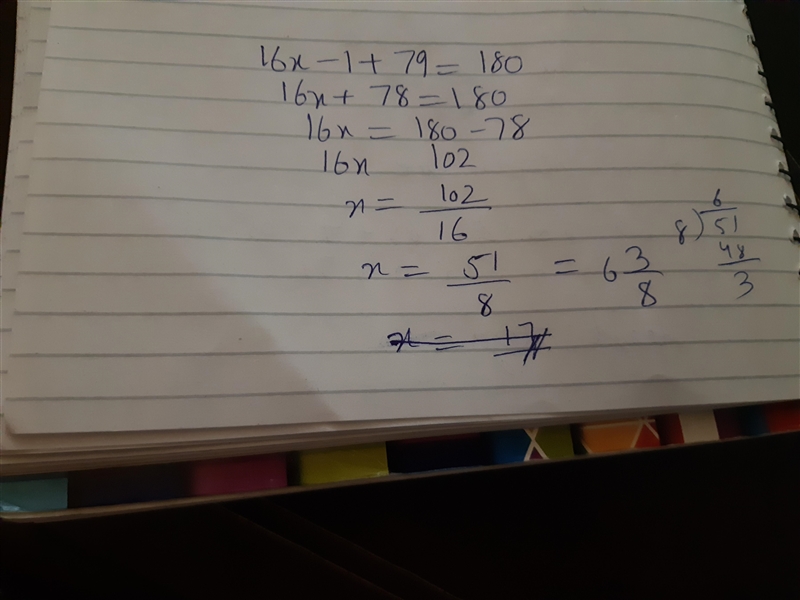 16x - 1 + 79 = 180
16x + 78 = 180
16x = 180 - 78
16x 102
x = 102/16
x = 51/8 = 6 3/8
x = 17
6
8) 51
48
3